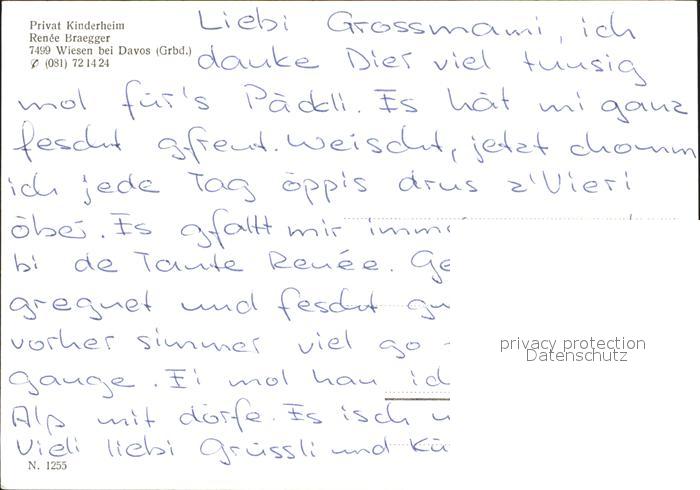 Privat Kinderheim
Renée Braegger
7499 Wiesen bei Davos (Grbd.)
✆ (081) 72 14 24
Liebi Grossmami, ich
danke Dier viel tuusig
mol für's Päckli. Es hät mi ganz
fescht gfreut. Weischt, jetzt chomm
ich jede Tag öppis drus z'Vieri
öbei. Es gfallt mir imm
bi de Tante Renée. Ge
gregnet und fescht gu
vorher simmer viel go
gange. Ei mol han ich
Alp mit dörfe. Es isch u
Vieli liebi Grüssli und Kü
N. 1255
privacy protection
Datenschutz